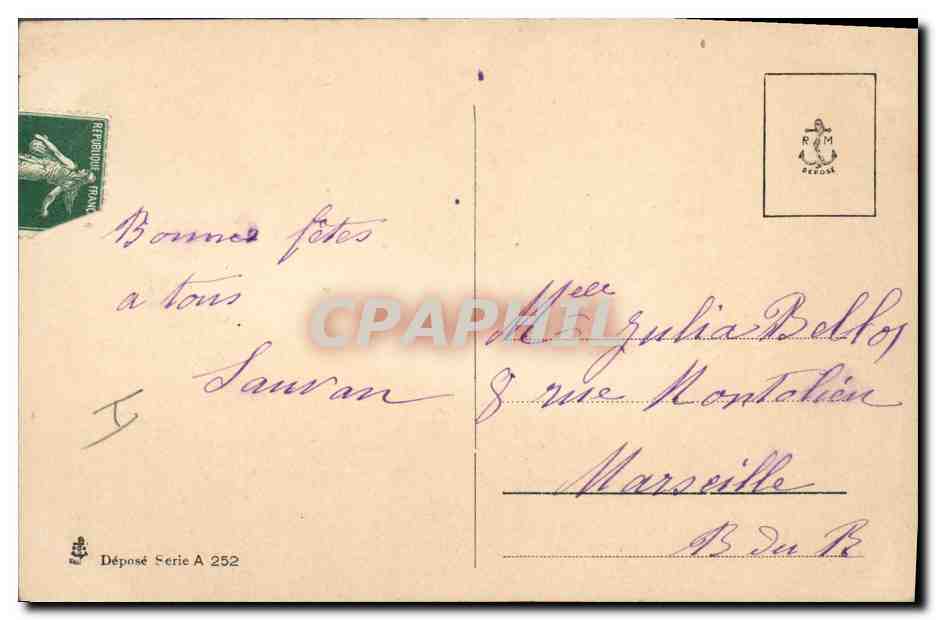 REPUBLIQUE FRANC
R M
DEPOSÉ
Bonnes fêtes
a tous
Sauvan
CPAPHIL
Melle Julia Bellos
8 rue Montolieu
Marseille
B du R
Déposé Serie A 252